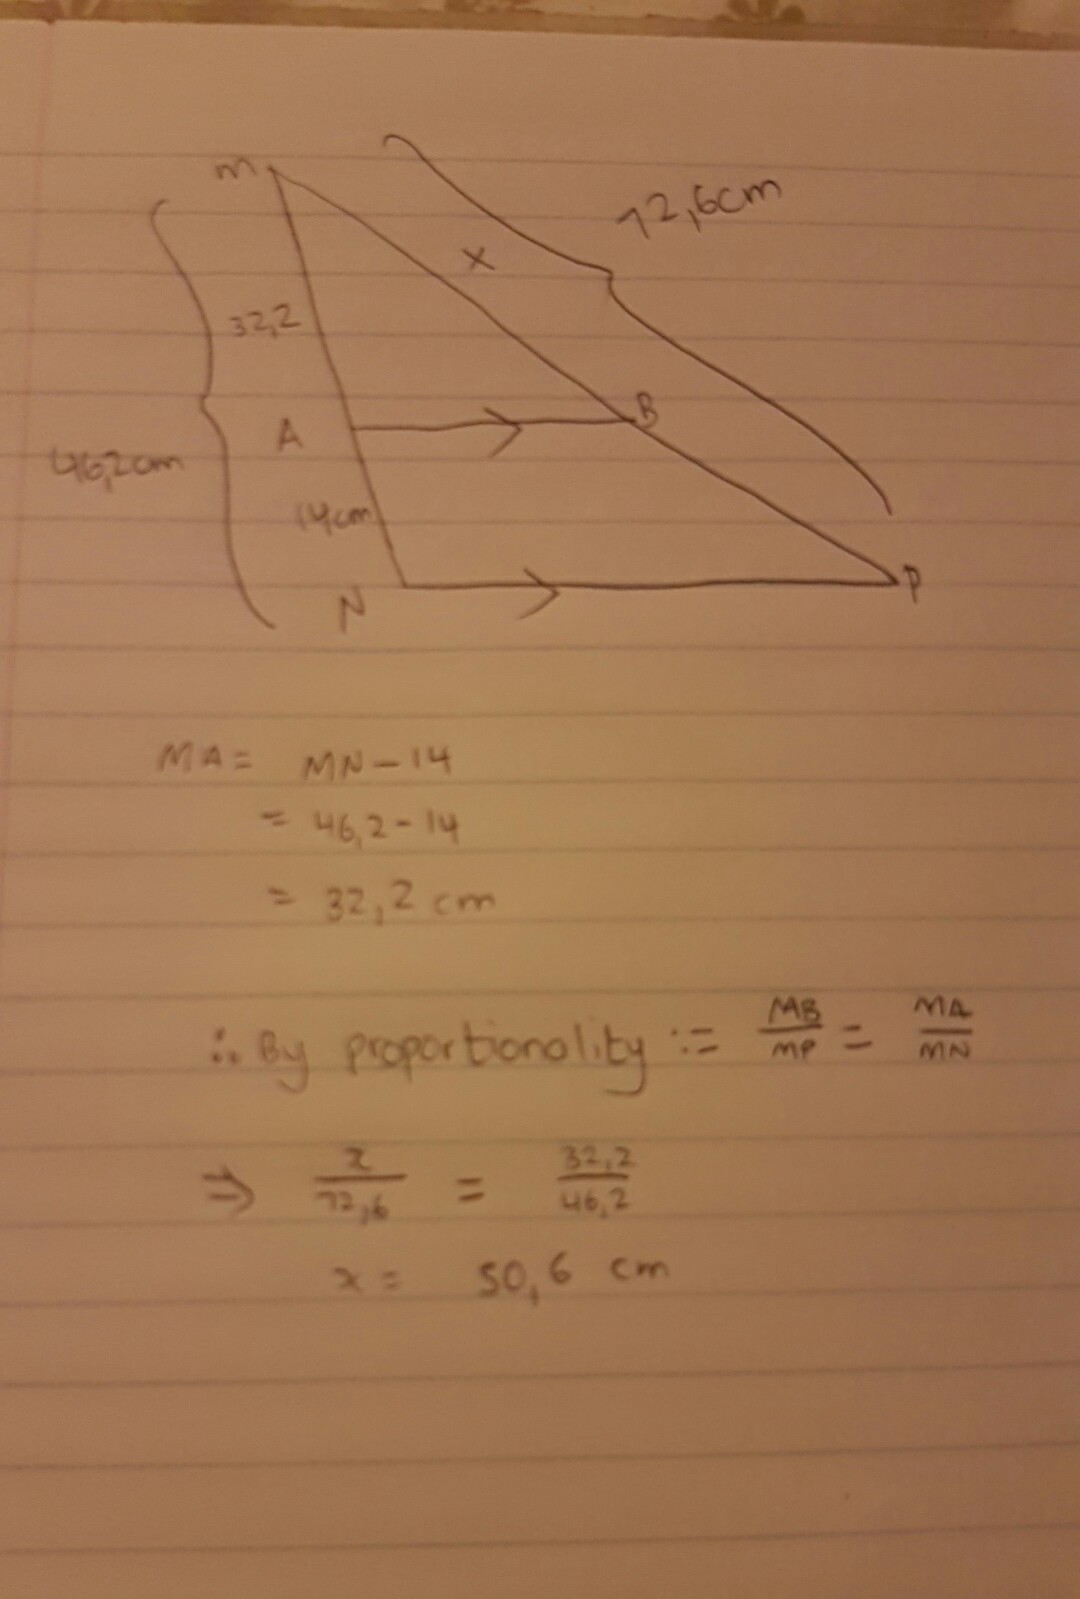 M
72,6cm
x
32,2
B
A
46,2cm
14cm
N
P
MA = MN - 14
= 46,2 - 14
= 32,2 cm
∴ By proportionality := MB/MP = MA/MN
⇒ x/72,6 = 32,2/46,2
x = 50,6 cm